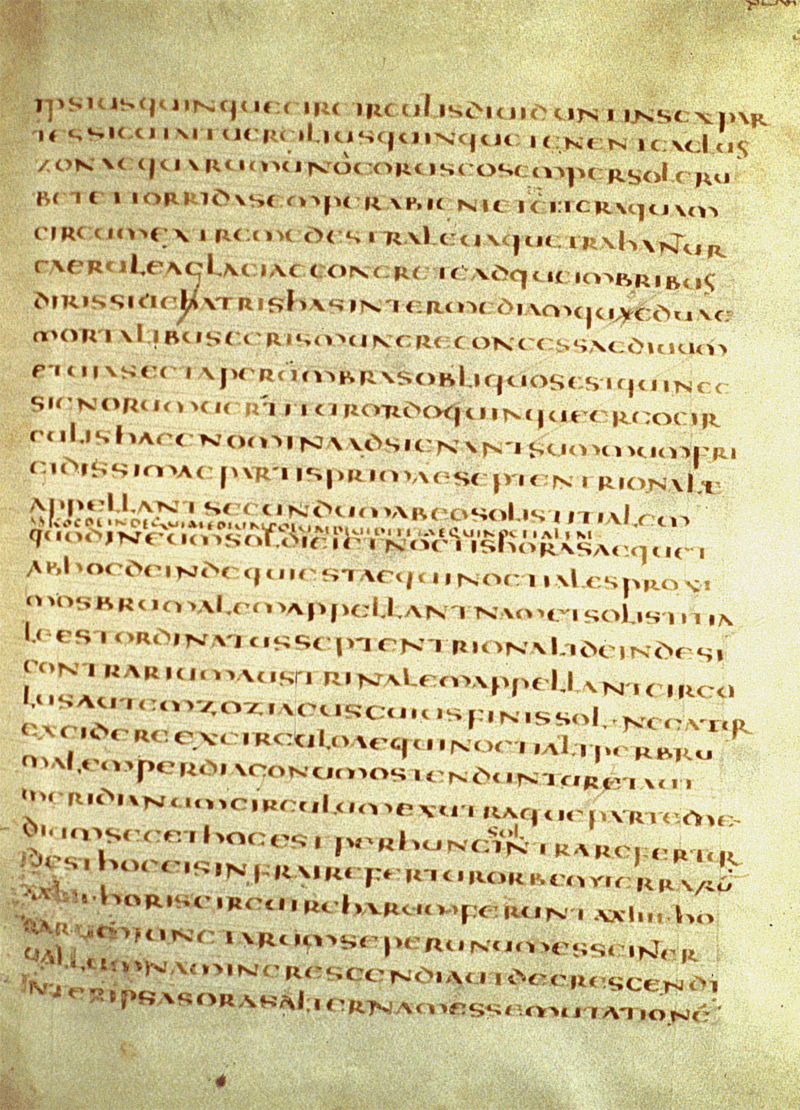 ipsius quinque circirculis diuidunt in sex par
tes sicut ait uergilius quinque tenent caelus
zonae quarum unocoruscosemper sole ru
bet et torrida semper ab
circum extreme dextra leuaque trahantur
caerulea glaciae concrete adque imbribus
diris sideb atris has inter mediamquae duae
mortalibus egris munere concessae diuum
et uia secta per umbras obliquos est qui nec
signorum uertitur ordo quinque ergo cir
culis haec nomina adsignant summum fri
gidissimae partis primae septentrionale
appellant secundum ab eo solistitialem
quod in eum sol dicit et noctis horas aequet
ab hoc deinde qui est aequinoctiales proxi
mos brumalem appellant nam et solistitia
le est ordinatus septentrionali deinde si
contrarium austrinalem appellant circu
lus autem zoziacus cuius finis sol negatur
excidere ex circulo aequinoctiali per bru
malem per diaconum ostenduntur et aut
meridianum circulum ex utraque parte me
dium secet hoc est per hunc sol intrare fertur
id est hoc eis infra ire fertur orbem terrarū
horis circuire harum ferunt xxiiii ho
rarum iunctarum se per unum esse inter
uallum nam in crescendi aut decrescendi
inter ipsas oras alterna messe mutatione